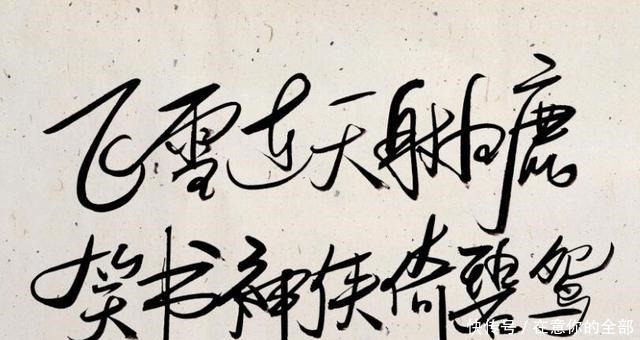 飞雪连天射白鹿
笑书神侠倚碧鸳
快传号/在意你的全部